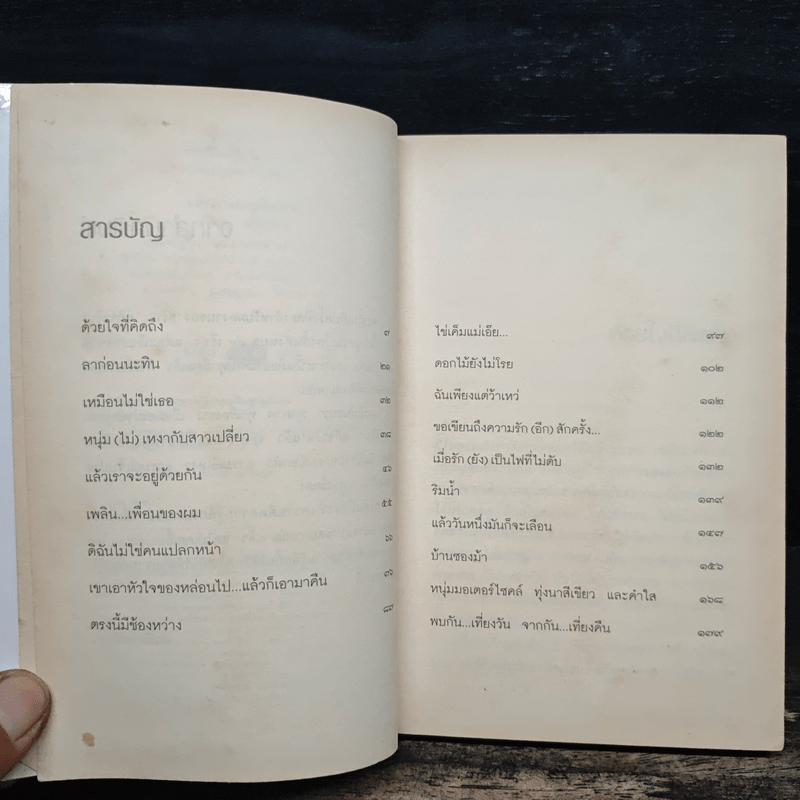 สารบัญ
ด้วยใจที่คิดถึง ๗
ลาก่อนนะทิน ๒๑
เหมือนไม่ใช่เธอ ๓๒
หนุ่ม (ไม่) เหงากับสาวเปลี่ยว ๓๘
แล้วเราจะอยู่ด้วยกัน ๔๖
เพลิน...เพื่อนของผม ๕๕
ดิฉันไม่ใช่คนแปลกหน้า ๖๖
เขาเอาหัวใจของหล่อนไป...แล้วก็เอามาคืน ๗๖
ตรงนี้มีช้องหว่าง ๘๗
ไข่เค็มแม่เอ๊ย... ๙๗
ดอกไม้ยังไม่โรย ๑๐๒
ฉันเพียงแต่ว้าเหว่ ๑๑๒
ขอเขียนถึงความรัก (อีก) สักครั้ง... ๑๒๒
เมื่อรัก (ยัง) เป็นไฟที่ไม่ดับ ๑๓๒
ริมน้ำ ๑๓๙
แล้ววันหนึ่งมันก็จะเลือน ๑๔๗
บ้านซองม้า ๑๕๖
หนุ่มมอเตอร์ไซคล์ ทุ่งนาสีเขียว และคำใส ๑๖๘
พบกัน...เที่ยงวัน จากกัน...เที่ยงคืน ๑๗๙